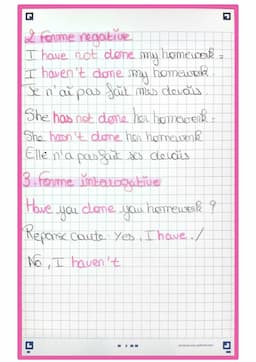 2. Forme negative
I have not done my homework =
I haven't done my homework.
Je n'ai pas fait mes devois
She has not done her homework =
She hasn't done her homework
Elle n'a pas fait ses devois
3. Forme interogative
Have you done you homework ?
Reponse coute Yes, I have. /
No, I haven't